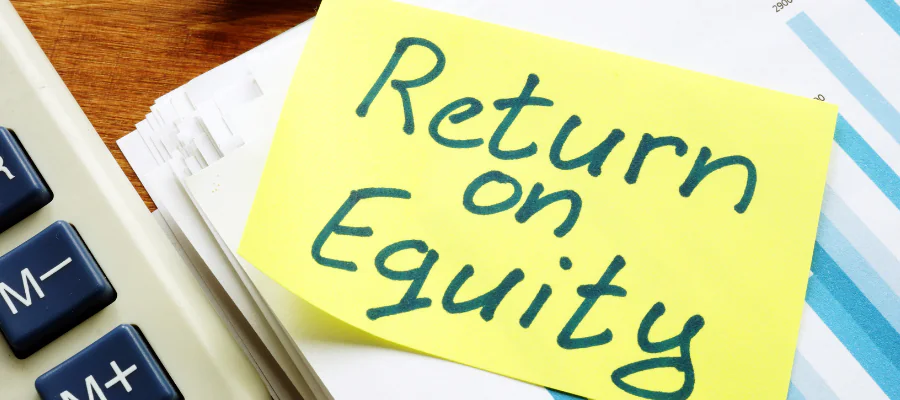 Return
on
Equity
M−
M+
2900